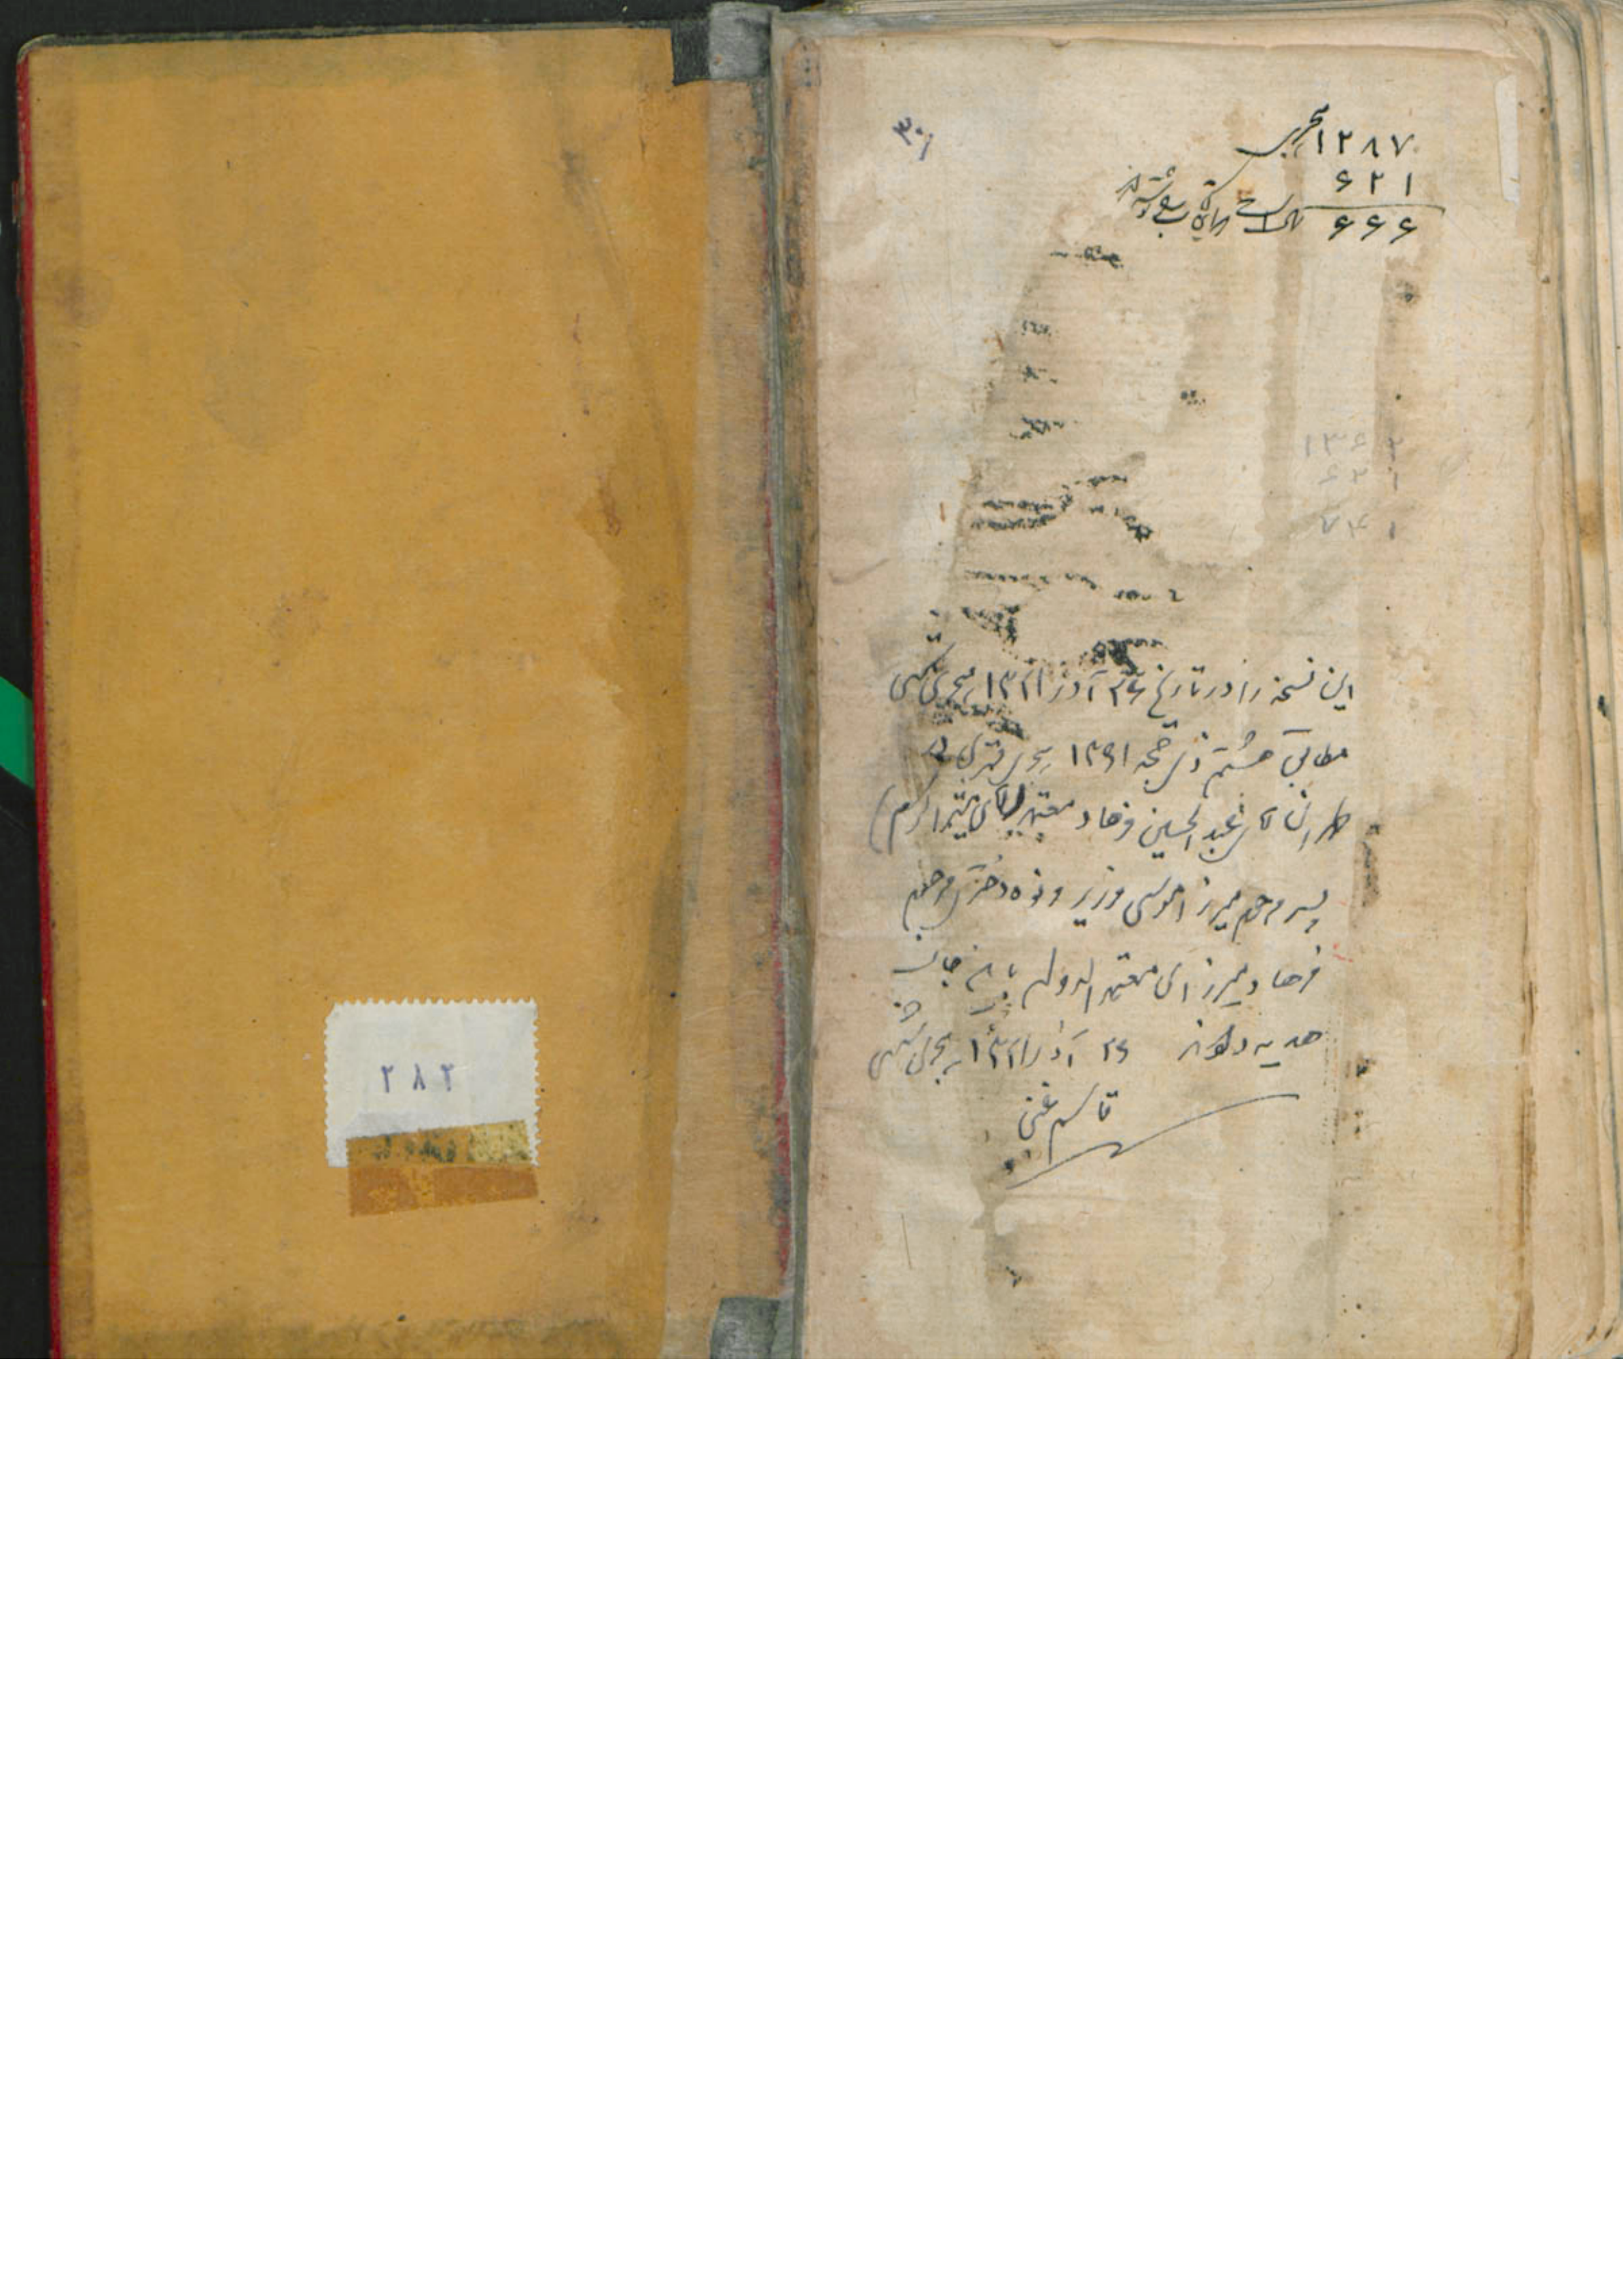 ۳۰
۱۲۸۷ هجری
۶۲۱
۶۶۶ سال است این کتاب نوشته شده
۱۳۶۲
۶۲۱
این نسخه را در تاریخ ۲۶ آذر ۱۳۲۱ هجری شمسی
مطابق هشتم ذی حجه ۱۳۶۱ هجری قمری در
طهران آقای عبدالحسین فرهاد معتمد
پسر مرحوم میرزا موسی وزیر و نوه دختری مرحوم
فرهاد میرزای معتمدالدوله باینجانب
هدیه دادند ۲۶ آذر ۱۳۲۱ هجری شمسی
قاسم غنی
۲۸۲